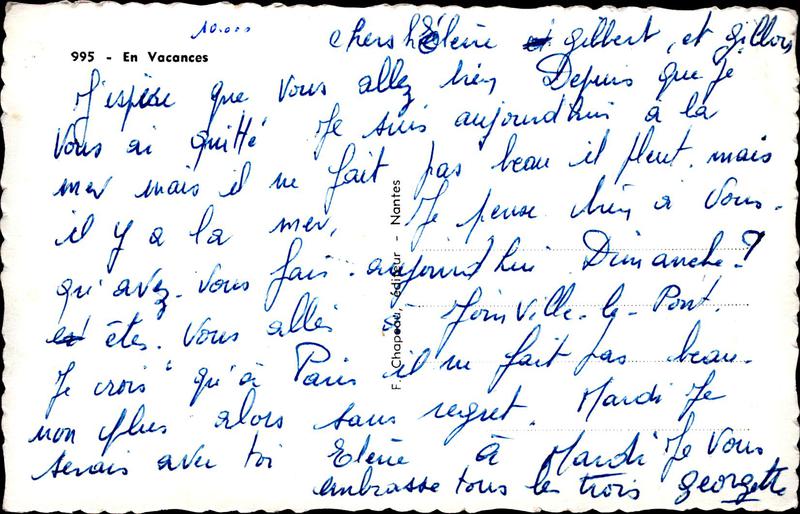 10.000
995 - En Vacances
chers hÉleine et gilbert, et gillou
J'espère que vous allez bien Depuis que Je
Vous ai quitté Je suis aujourd'hui à la
mer mais il ne fait pas beau il pleut. mais
il y a la mer, Je pense bien à Vous.
qu'avez-vous fais aujourd'hui Dimanche?
et êtes-Vous allés à Joinville-le-Pont.
Je crois qu'à Paris il ne fait pas beau
non plus alors sans regret. Mardi Je
serais avec toi Eleine à Mardi Je Vous
embrasse tous les trois georgette
F. Chapeau, éditeur - Nantes